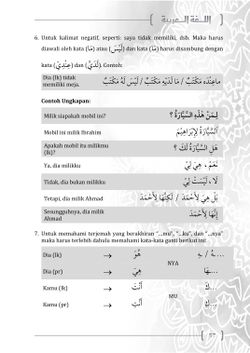 اللـغة العـربية
6. Untuk kalimat negatif, seperti: saya tidak memiliki, dsb. Maka harus
diawali oleh kata (مَا) atau (لَيْسَ) dan kata (مَا) harus disambung dengan
kata (عِنْدِيْ) dan (لَدَيَّ). Contoh:
Dia (lk) tidak memiliki meja. مَاعِنْدَهُ مَكْتَبٌ / مَا لَدَيْهِ مَكْتَبٌ / لَيْسَ لَهُ مَكْتَبٌ
Contoh Ungkapan:
Milik siapakah mobil ini? لِمَنْ هَذِهِ السَّيَّارَةُ ؟
Mobil ini milik Ibrahim السَّيَّارَةُ لِإِبْرَاهِيْمَ
Apakah mobil itu milikmu (lk)? هَلِ السَّيَّارَةُ لَكَ ؟
Ya, dia milikku نَعَمْ ، هِيَ لِيْ
Tidak, dia bukan milikku لَا ، لَيْسَتْ لِيْ
Tetapi, dia milik Ahmad بَلْ هِيَ لِأَحْمَدَ / لَكِنَّهَا لِأَحْمَدَ
Sesungguhnya, dia milik Ahmad إِنَّهَا لِأَحْمَدَ
7. Untuk memahami terjemah yang berakhiran "...mu", "...ku", dan "...nya"
maka harus terlebih dahulu memahami kata-kata ganti berikut ini:
Dia (lk) → هُوَ ...هُ / ...هِ
NYA
Dia (pr) → هِيَ ...هَا
Kamu (lk) → أَنْتَ ...كَ
MU
Kamu (pr) → أَنْتِ ...كِ